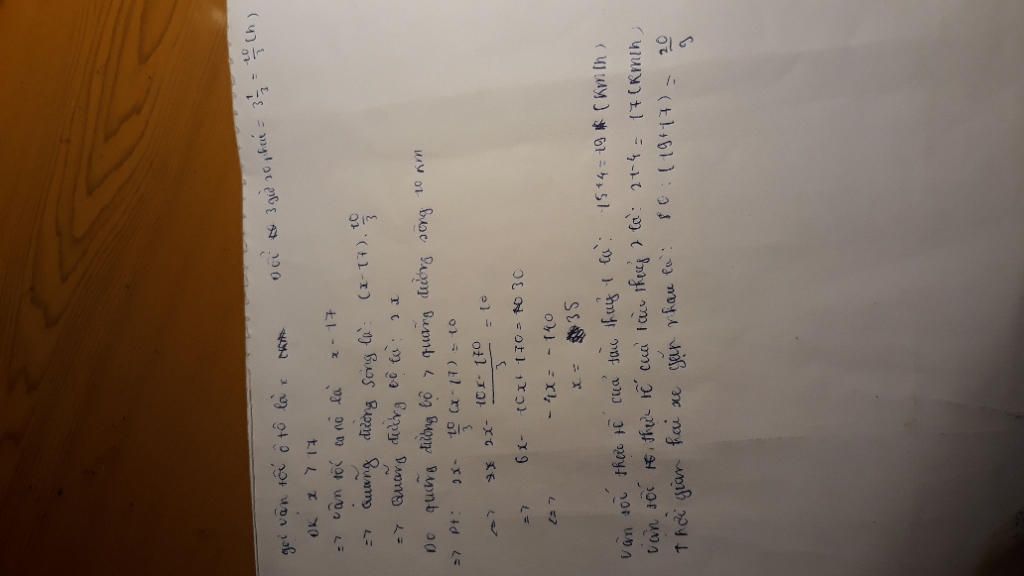 gọi vận tốc ô tô là x
Đổi 3 giờ 20 phút = 3 1/3 = 10/3 (h)
ĐK x > 17
=> vận tốc ca nô là x - 17
=> Quãng đường sông là: (x - 17) . 10/3
=> Quãng đường bộ là: 2x
Do quãng đường bộ > quãng đường sông 10 km
=> Pt: 2x - 10/3 (x - 17) = 10
<=> 2x - 10x - 170/3 = 10
=> 6x - 10x + 170 = 30
<=> -4x = -140
x = 35
vận tốc thực tế của tàu thuỷ 1 là: 15+4 = 19 (km/h)
vận tốc thực tế của tàu thuỷ 2 là: 21-4 = 17 (km/h)
Thời gian hai xe gặp nhau là: 80 : (19+17) = 20/9